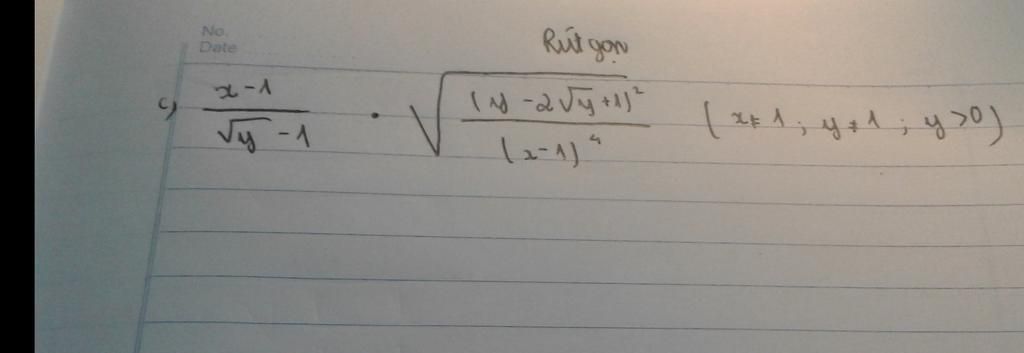 No.
Date
Rút gọn
c) \frac{x-1}{\sqrt{y}-1} \cdot \sqrt{\frac{(y-2\sqrt{y}+1)^2}{(x-1)^4}} (x≠1; y≠1; y>0)